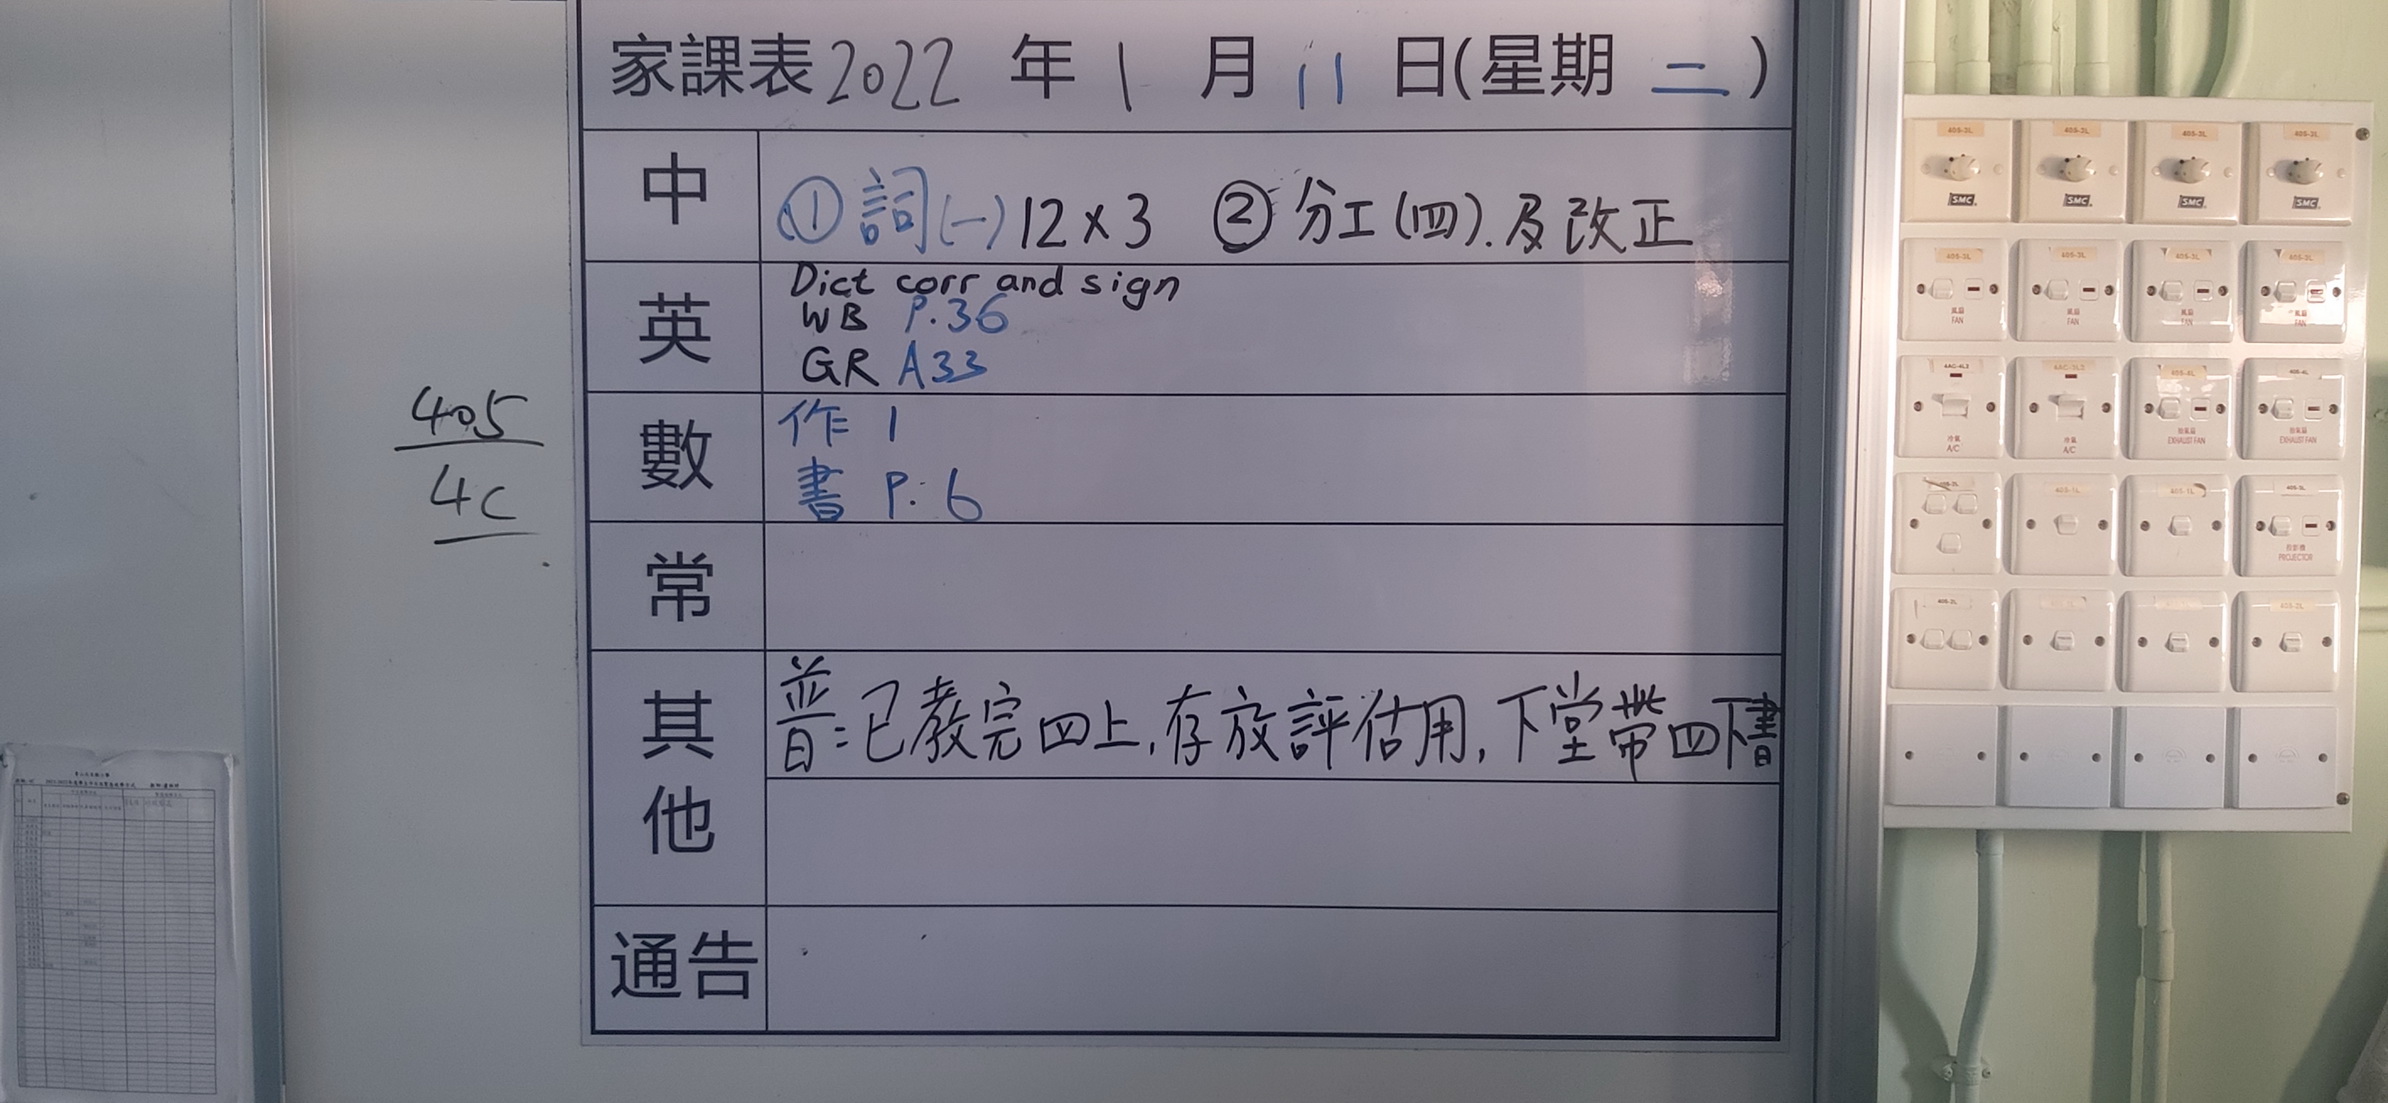 家課表2022 年 1 月 11 日(星期 二)
中 ① 詞(一)12×3 ② 分工(四).及改正
英 Dict corr and sign
WB P.36
GR A33
數 作 1
書 P. 6
常
其他 普:已教完四上,存放評估用,下堂帶四下書
通告
405
4C
405-3L 405-3L 405-3L 405-3L
SMC SMC SMC SMC
405-3L 405-3L 405-3L 405-3L
風扇 風扇 風扇 風扇
FAN FAN FAN FAN
4AC-4L3 4AC-3L3 405-4L 405-4L
冷氣 冷氣 抽氣扇 抽氣扇
A/C A/C EXHAUST FAN EXHAUST FAN
405-1L 405-1L 405-3L
投影機
PROJECTOR
405-2L 405-2L